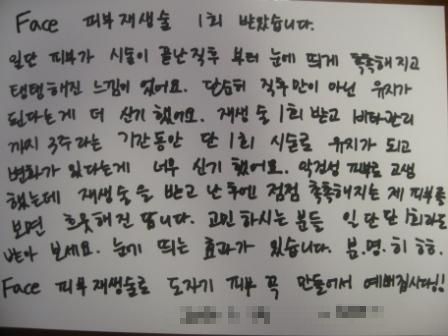 Face 피부재생술 1회 받았습니다.
일단 피부가 시술이 끝난직후 부터 눈에 띄게 촉촉해지고
탱탱해진 느낌이 있어요. 단순히 직후만이 아닌 유지가
된다는게 더 신기했어요. 재생술 1회 받고 비타관리
까지 3주라는 기간동안 단 1회 시술로 유지가 되고
변화가 있다는게 너무 신기했어요. 악건성 피부로 고생
했는데 재생술을 받고 난 후엔 점점 촉촉해지는 제 피부를
보면 흐뭇해진 땁니다. 고민하시는 분들 일단 단 1회라도
받아 보세요. 눈에 띄는 효과가 있습니다. 분.명.히 ㅎㅎ.
Face 피부재생술로 도자기 피부 꼭 만들어서 예뻐집시다!!